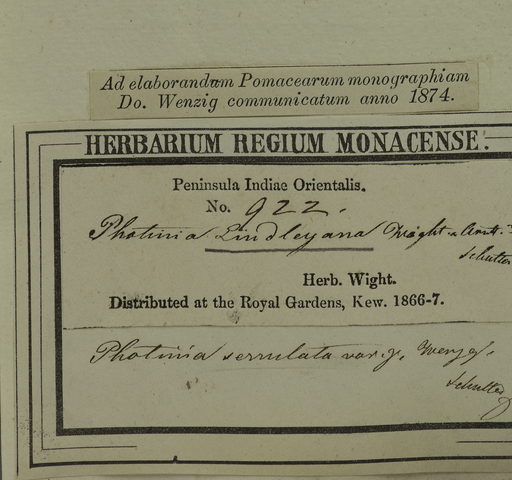 Ad elaborandum Pomacearum monographiam
Do. Wenzig communicatum anno 1874.
HERBARIUM REGIUM MONACENSE.
Peninsula Indiae Orientalis.
No. 922.
Photinia Lindleyana Wight & Arnt.
Herb. Wight.
Distributed at the Royal Gardens, Kew. 1866-7.
Photinia serrulata var. γ. Wenzg.